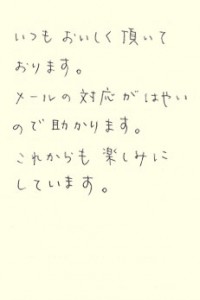 いつもおいしく頂いて
おります。
メールの対応がはやい
ので助かります。
これからも楽しみに
しています。